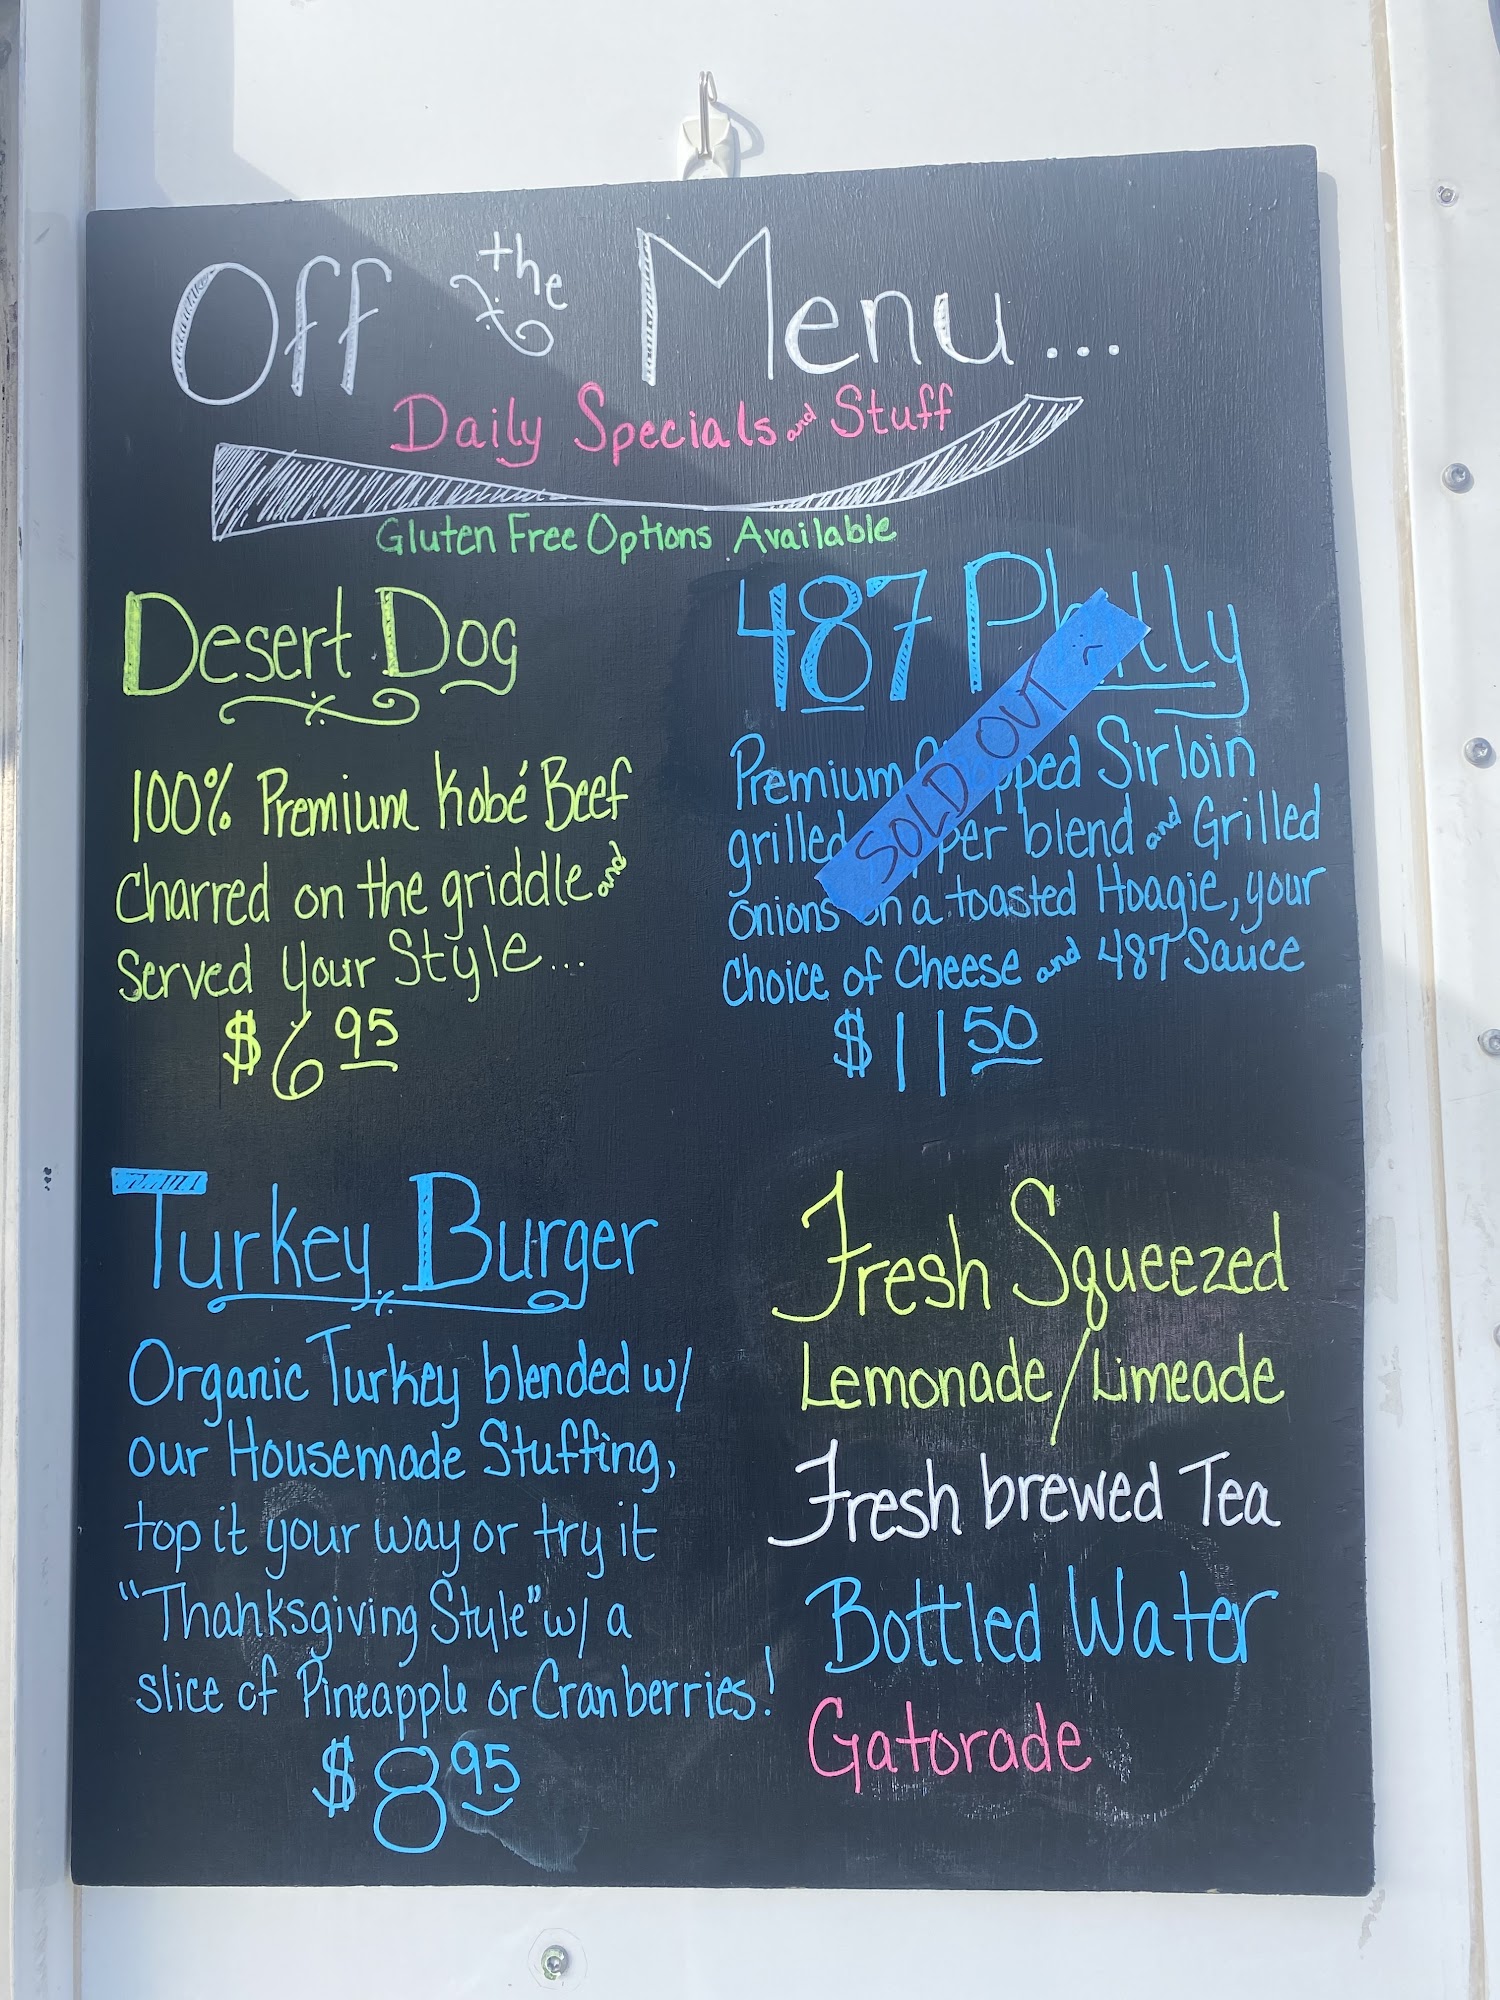 Off the Menu...
Daily Specials and Stuff
Gluten Free Options Available
Desert Dog
100% Premium Kobé Beef
Charred on the griddle and
Served Your Style...
$6.95
487 Philly
SOLD OUT :(
Premium Sirloin
grilled blend and Grilled
Onions on a toasted Hoagie, your
Choice of Cheese and 487 Sauce
$11.50
Turkey Burger
Organic Turkey blended w/
our Housemade Stuffing,
top it your way or try it
"Thanksgiving Style" w/ a
slice of Pineapple or Cranberries!
$8.95
Fresh Squeezed
Lemonade/Limeade
Fresh brewed Tea
Bottled Water
Gatorade